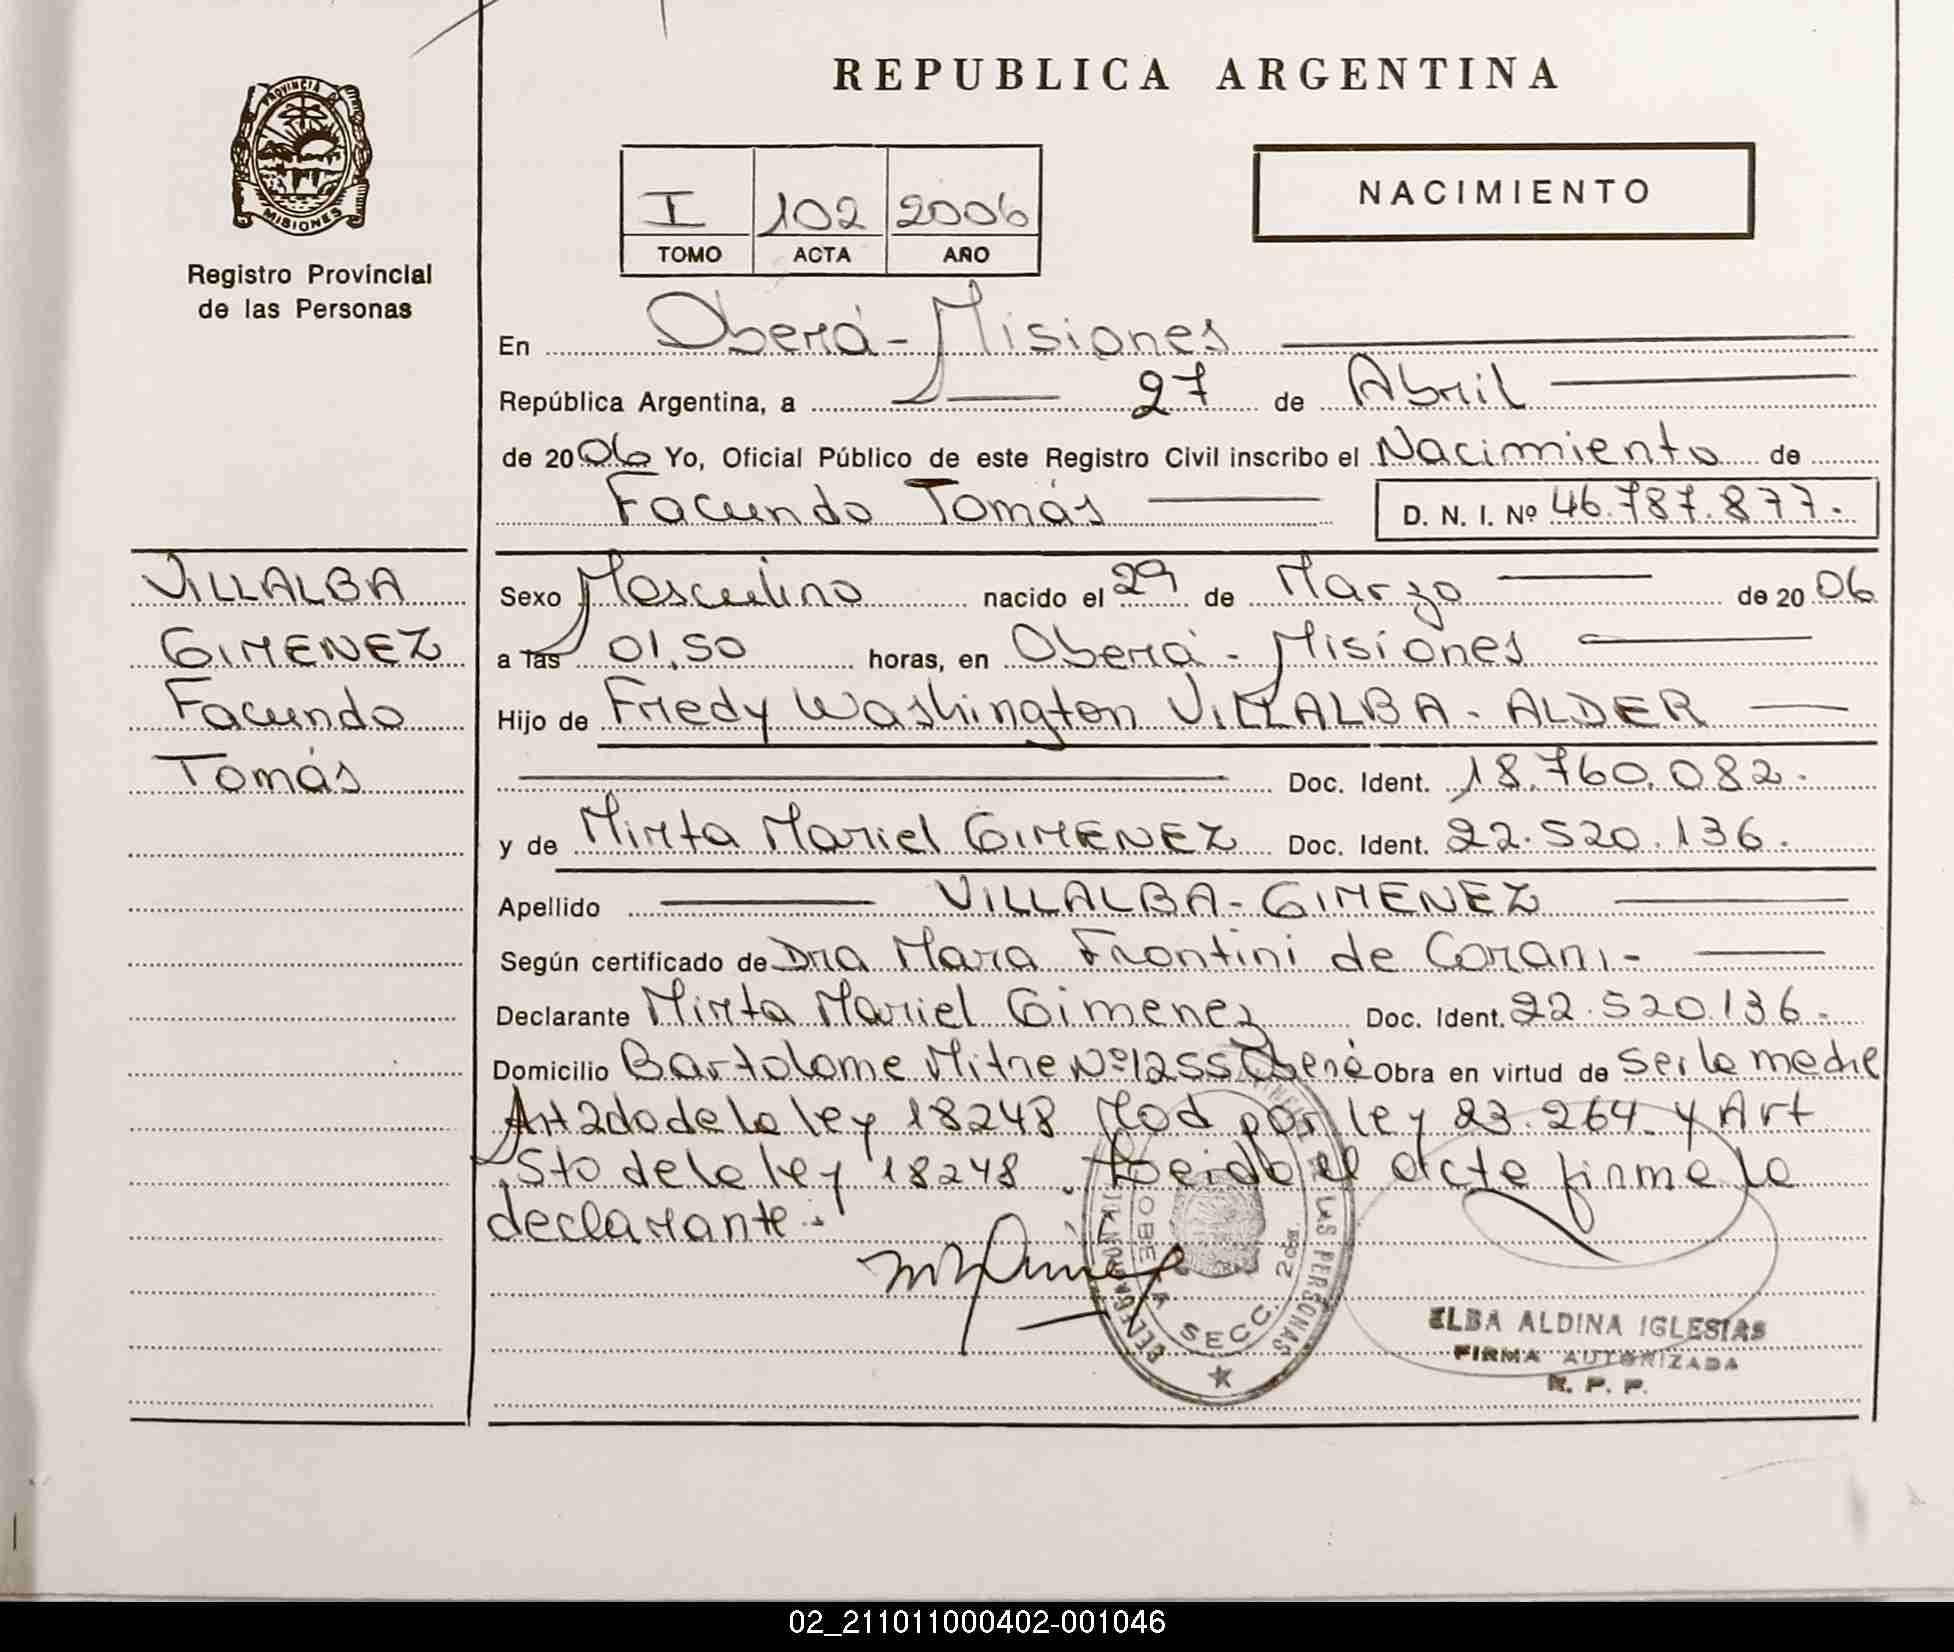 REPUBLICA ARGENTINA
PROVINCIA DE
MISIONES
Registro Provincial
de las Personas
I 102 2006
TOMO ACTA AÑO
NACIMIENTO
En Oberá - Misiones
República Argentina, a 27 de Abril
de 2006 Yo, Oficial Público de este Registro Civil inscribo el Nacimiento de
Facundo Tomás D. N. I. Nº 46.787.877.
VILLALBA
GIMENEZ
Facundo
Tomás
Sexo Masculino nacido el 29 de Marzo de 2006
a las 01,50 horas, en Oberá - Misiones
Hijo de Fredy Washington VILLALBA - ALDER
Doc. Ident. 18.760.082.
y de Mirta Mariel GIMENEZ Doc. Ident. 22.520.136.
Apellido VILLALBA - GIMENEZ
Según certificado de Dra Mara Frontini de Corani -
Declarante Mirta Mariel Gimenez Doc. Ident. 22.520.136.
Domicilio Bartolome Mitre Nº 1255 Oberá Obra en virtud de ser la madre
Art 2do de la ley 18248 Mod por ley 23.264 y Art
5to de la ley 18248. Leido el acta firma la
declarante.
OBERA
SECC. 2da.
LAS PERSONAS
ELBA ALDINA IGLESIAS
FIRMA AUTORIZADA
R. P. P.
02_211011000402-001046